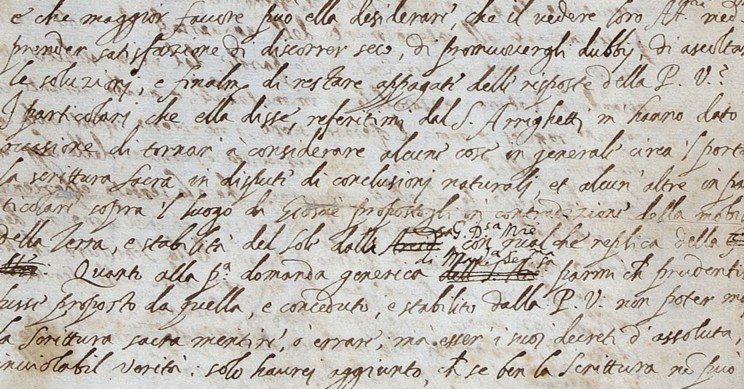 e che maggior favore può ella desiderare, che il vedere loro Alt.
prender satisfazione di discorrer seco, di promuovergli dubbij, di ascoltar
le soluzioni, e finalm.e di restare appagati delle risposte della P. V.?
I particolari che ella disse, referitimi dal S. Arrighetti, m' hanno dato
occasione di tornare à considerare alcune cose in generale circa 'l portar
la scrittura sacra in dispute di conclusioni naturali, et alcun' altre in par
ticolare sopra 'l luogo di Giosuè propostogli in contradizione della mobil
della Terra, e stabilità del Sole dalla con qualche replica della
Quanto alla p.a domanda generica di parmi ch' prudentiss
fusse proposto da quella, e conceduto, e stabilito dalla P. V. non poter m
la Scrittura sacra mentire, ò errare, ma esser i suoi decreti d' assoluta,
inviolabil verità: solo haurei aggiunto, ch' se ben la Scrittura nō può